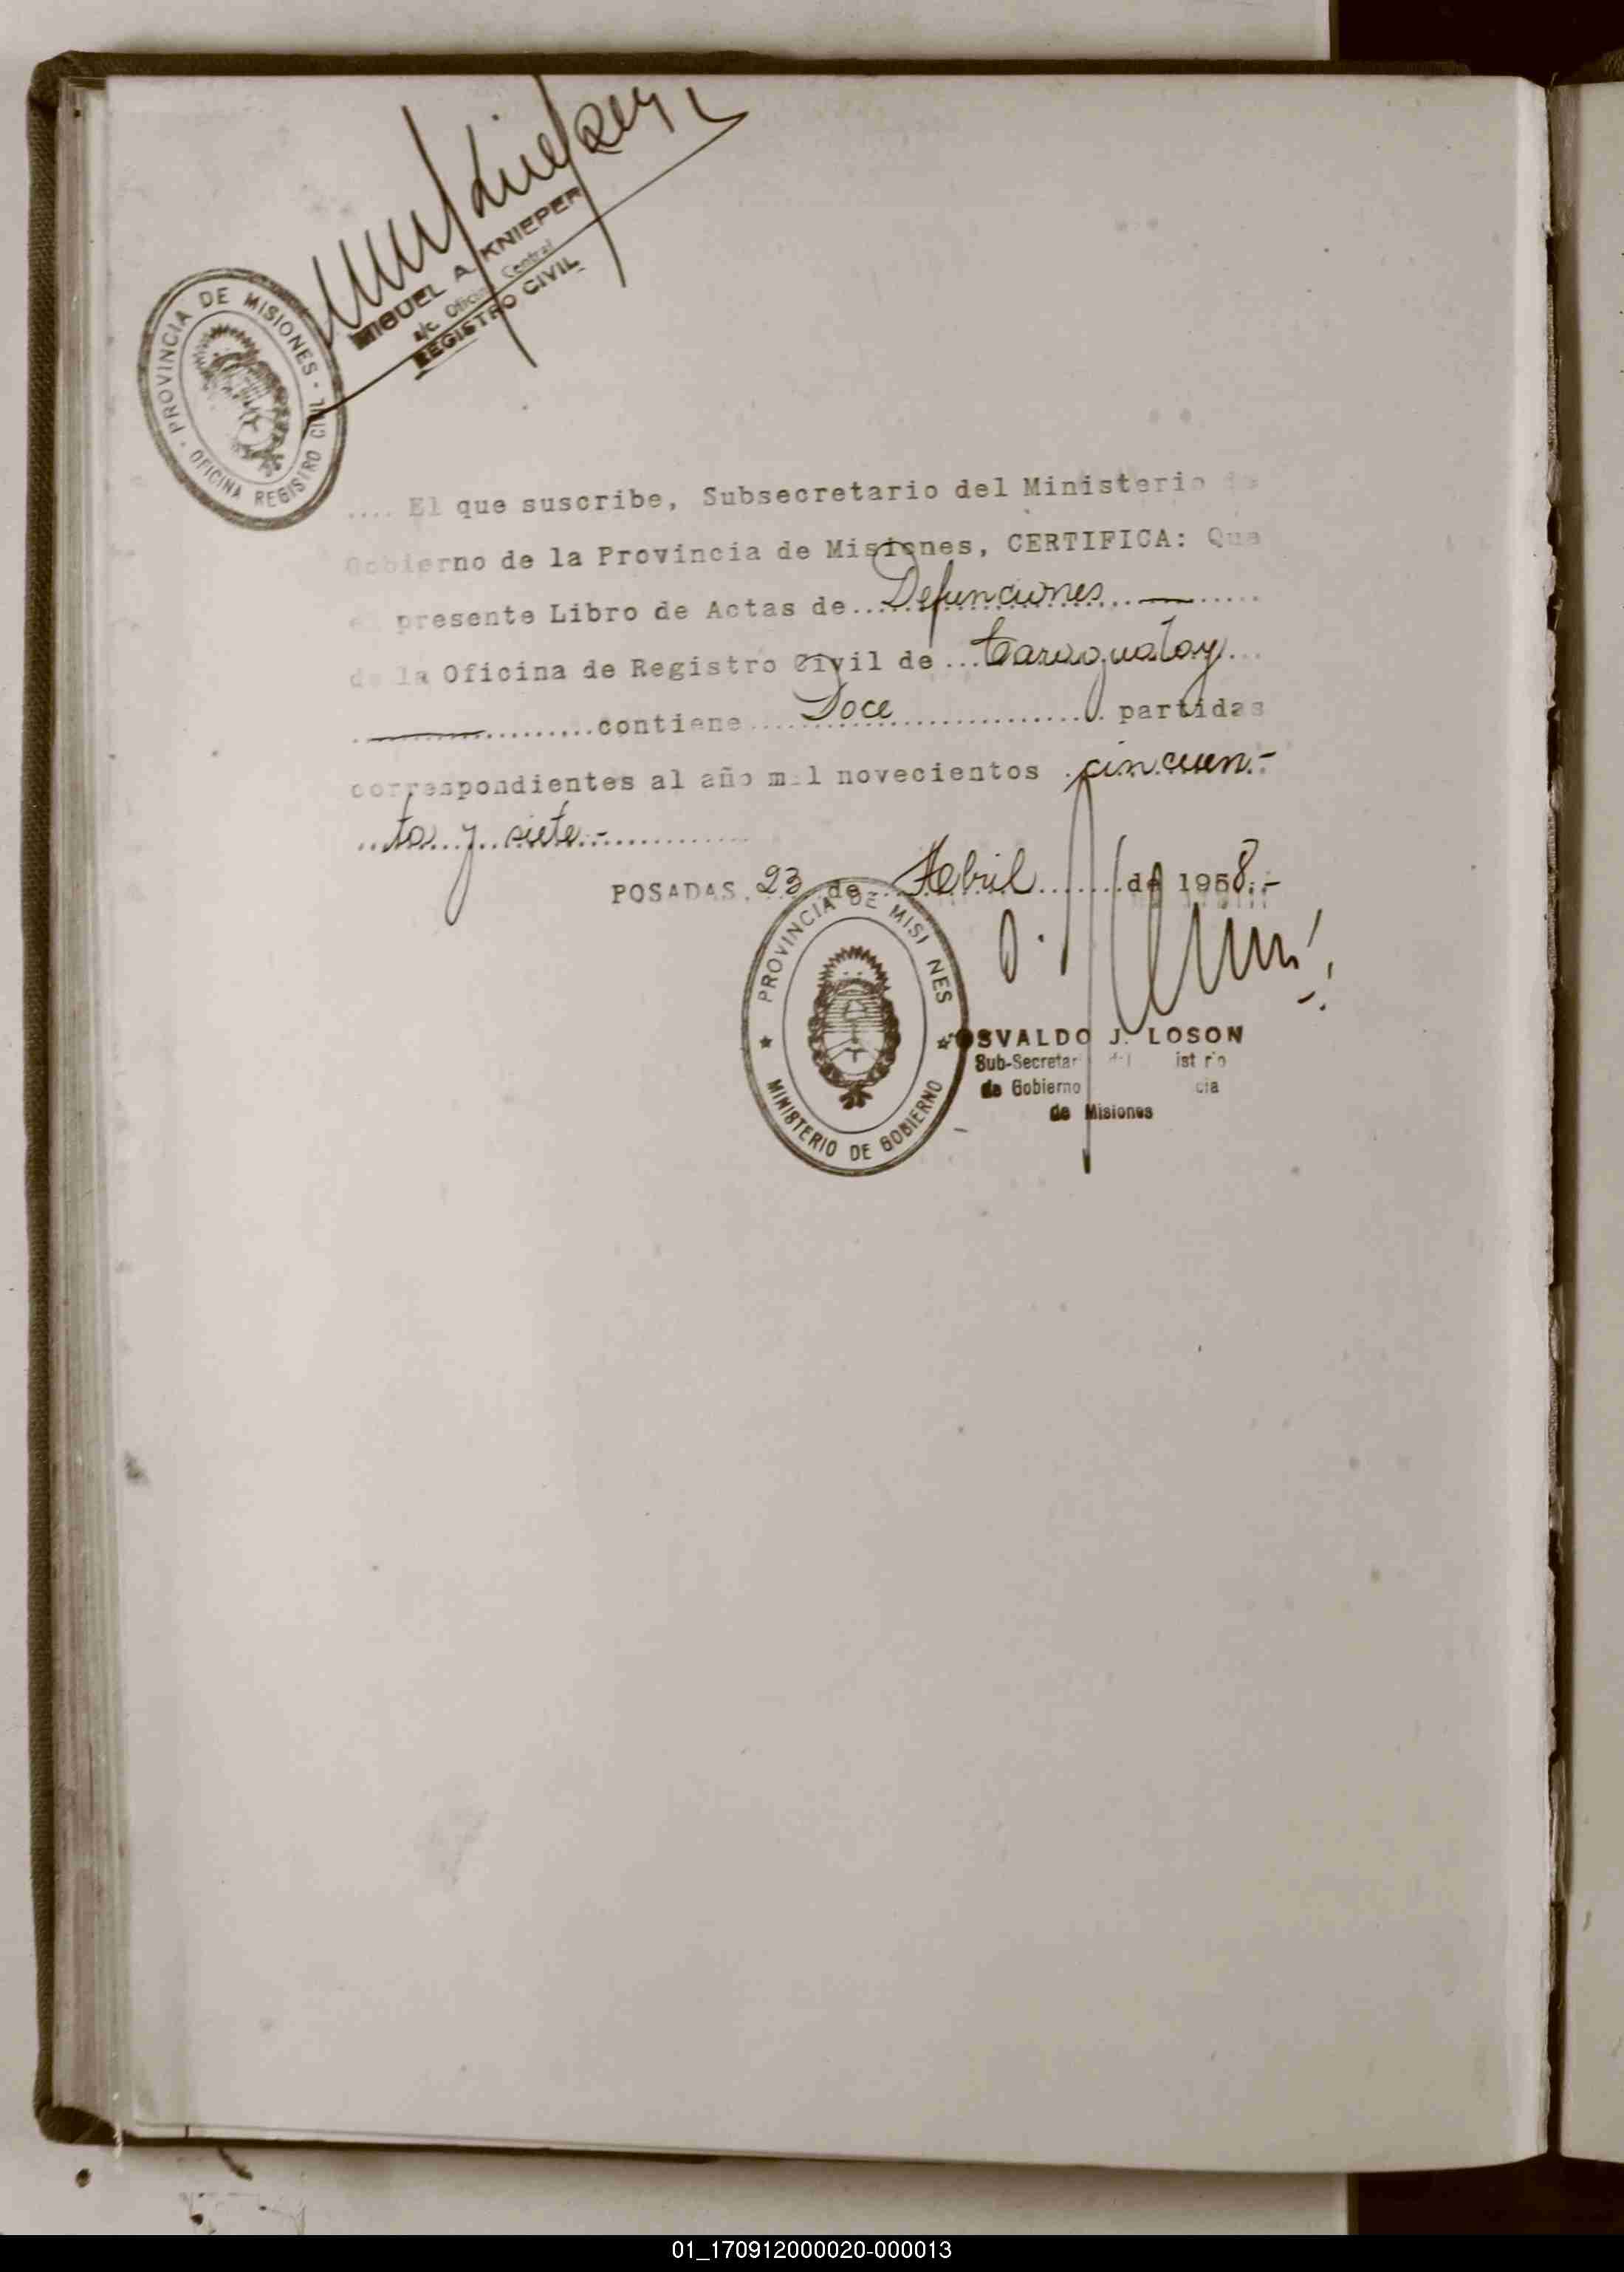 MIGUEL A. KNIEPER
a/c. Oficina Central
REGISTRO CIVIL
PROVINCIA DE MISIONES
OFICINA REGISTRO CIVIL
.... El que suscribe, Subsecretario del Ministerio de
Gobierno de la Provincia de Misiones, CERTIFICA: Que
el presente Libro de Actas de...Defunciones.......
de la Oficina de Registro Civil de ...Caraguatay...
..........contiene.....Doce............. partidas
correspondientes al año mil novecientos .cincuen.-
...ta...y...siete.-............
POSADAS, 23 de...Abril.......de 1958.-
PROVINCIA DE MISI NES
MINISTERIO DE GOBIERNO
OSVALDO J. LOSON
Sub-Secretar ist rio
de Gobierno cia
de Misiones
01_170912000020-000013